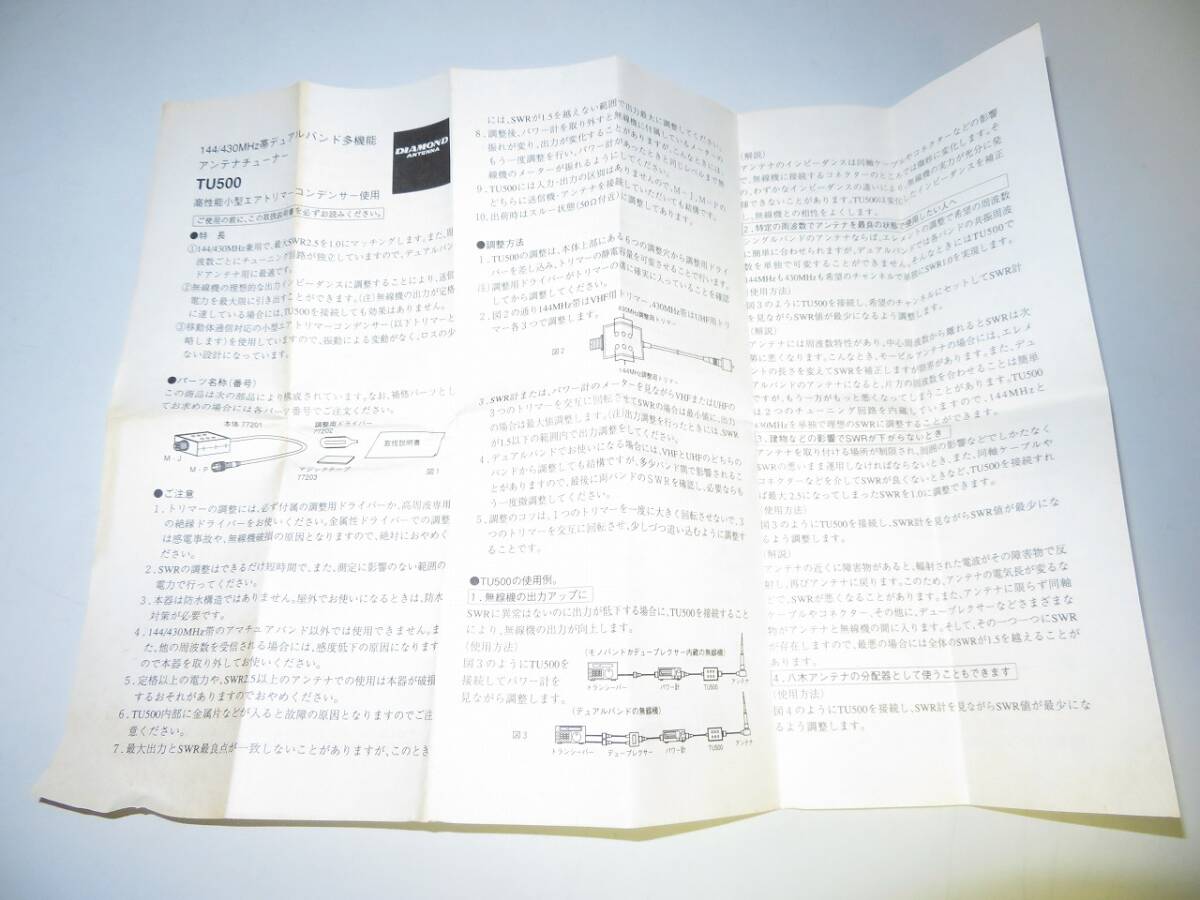 144/430MHz帯デュアルバンド多機能
アンテナチューナー
TU500
高性能小型エアトリマーコンデンサー使用
DIAMOND
ANTENNA
ご使用の前に、この取扱説明書を必ずお読みください。
●特 長
①144/430MHz兼用で、最大SWR2.5を1.0にマッチングします。また、周
波数ごとにチューニング回路が独立していますので、デュアルバン
ドアンテナ用に最適です。
②無線機の理想的な出力インピーダンスに調整することにより、送信
電力を最大限に引き出すことができます。(注)無線機の出力が定格
に達している場合には、TU500を接続しても効果はありません。
③移動体通信対応の小型エアトリマーコンデンサー(以下トリマーと
略します)を使用していますので、振動による変動がなく、ロスの少
ない設計になっています。
●パーツ名称(番号)
この商品は次の部品により構成されています。なお、補修パーツとし
てお求めの場合には各パーツ番号でご注文ください。
本体 77201
調整用ドライバー
77202
取扱説明書
M-J
M-P
マジックテープ
77203
図1
●ご注意
1.トリマーの調整には、必ず付属の調整用ドライバーか、高周波専用
の絶縁ドライバーをお使いください。金属性ドライバーでの調整
は感電事故や、無線機破損の原因となりますので、絶対におやめく
ださい。
2.SWRの調整はできるだけ短時間で、また、測定に影響のない範囲の
電力で行ってください。
3.本器は防水構造ではありません。屋外でお使いになるときは、防水
対策が必要です。
4.144/430MHz帯のアマチュアバンド以外では使用できません。ま
た、他の周波数を受信される場合には、感度低下の原因になります
ので本器を取り外してお使いください。
5.定格以上の電力や、SWR2.5以上のアンテナでの使用は本器が破損
するおそれがありますのでおやめください。
6.TU500内部に金属片などが入ると故障の原因となりますのでご注
意ください。
7.最大出力とSWR最良点が一致しないことがありますが、このとき
には、SWRが1.5を越えない範囲で出力最大に調整してください。
8.調整後、パワー計を取り外すと無線機に付属しているメーターの
振れが変り、出力が変化することがありますが、こんなときには、
もう一度調整を行い、パワー計があったときと同じレベルまで無
線機のメーターが振れるようにしてください。
9.TU500には入力・出力の区別はありませんので、M-J、M-Pの
どちらに送信機・アンテナを接続していただいても結構です。
10.出荷時はスルー状態(50Ω付近)に調整してあります。
●調整方法
1.TU500の調整は、本体上部にある6つの調整穴から調整用ドライ
バーを差し込み、トリマーの静電容量を可変させることで行います。
(注)調整用ドライバーがトリマーの溝に確実に入っていることを確認
してから調整してください。
2.図2の通り144MHz帯はVHF用トリマー、430MHz帯はUHF用トリ
マー各3つで調整します。
430MHz調整用トリマー
図2
144MHz調整用トリマー
3.SWR計または、パワー計のメーターを見ながらVHFまたはUHFの
3つのトリマーを交互に回転させてSWRの場合は最小値に、出力
の場合は最大値調整します。(注)出力調整を行ったときには、SWR
が1.5以下の範囲内で出力調整をしてください。
4.デュアルバンドでお使いになる場合には、VHFとUHFのどちらの
バンドから調整しても結構ですが、多少バンド間で影響されるこ
とがありますので、最後に両バンドのSWRを確認し、必要ならも
う一度微調整してください。
5.調整のコツは、1つのトリマーを一度に大きく回転させないで、3
つのトリマーを交互に回転させ、少しづつ追い込むように調整す
ることです。
●TU500の使用例。
1.無線機の出力アップに
SWRに異常はないのに出力が低下する場合に、TU500を接続すること
により、無線機の出力が向上します。
(使用方法)
図3のようにTU500を
接続してパワー計を
見ながら調整します。
(モノバンドかデュープレクサー内蔵の無線機)
トランシーバー
パワー計
TU500
アンテナ
(デュアルバンドの無線機)
図3
トランシーバー
デュープレクサー
パワー計
TU500
アンテナ
(解説)
アンテナのインピーダンスは同軸ケーブルやコネクターなどの影響
で、無線機に接続するコネクターのところでは微妙に変化します。そ
の、わずかなインピーダンスの違いにより、無線機の実力が充分に発
揮できないことがあります。TU500は変化したインピーダンスを補正
し、無線機との相性をよくします。
2.特定の周波数でアンテナを最良の状態で使用したい人へ
シングルバンドのアンテナならば、エレメントの調整で希望の周波数
に簡単に合わせられますが、デュアルバンドでは各バンドの共振周波
数を単独で可変することができません。そんなときにはTU500で
144MHzも430MHzも希望のチャンネルで単独にSWR1.0を実現します。
(使用方法)
図3のようにTU500を接続し、希望のチャンネルにセットしてSWR計
を見ながらSWR値が最少になるよう調整します。
(解説)
アンテナには周波数特性があり、中心周波数から離れるとSWRは次
第に悪くなります。こんなとき、モービルアンテナの場合には、エレメ
ントの長さを変えてSWRを補正しますが限界があります。また、デュ
アルバンドのアンテナになると、片方の周波数を合わせることは簡単
ですが、もう一方がもっと悪くなってしまうことがあります。TU500
は2つのチューニング回路を内蔵していますので、144MHzと
430MHzを単独で理想のSWRに調整することができます。
3.建物などの影響でSWRが下がらないとき
アンテナを取り付ける場所が制限され、周囲の影響などでしかたなく
SWRの悪いまま運用しなければならないとき、また、同軸ケーブルや
コネクターなどを介してSWRが良くないときなど、TU500を接続すれ
ば最大2.5になってしまったSWRを1.0に調整できます。
(使用方法)
図3のようにTU500を接続し、SWR計を見ながらSWR値が最少にな
るよう調整します。
(解説)
アンテナの近くに障害物があると、輻射された電波がその障害物で反
射し、再びアンテナに戻ります。このため、アンテナの電気長が変るな
どで、SWRが悪くなることがあります。また、アンテナに限らず同軸
ケーブルやコネクター、その他に、デュープレクサーなどさまざまな
物がアンテナと無線機の間に入ります。そして、その一つ一つにSWR
が存在しますので、最悪の場合には全体のSWRが1.5を越えることが
あります。
4.八木アンテナの分配器として使うこともできます
(使用方法)
図4のようにTU500を接続し、SWR計を見ながらSWR値が最少にな
るよう調整します。